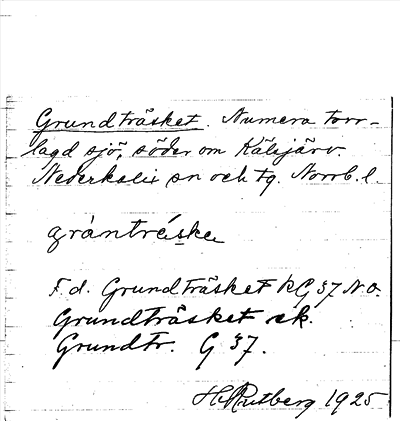 Grundträsket. Numera torr-
lagd sjö, söder om Kälsjärv.
Nederkalix sn och tg. Norrb. l.
grànträ́ske
F.d. Grundträsket kG 37 N.O.
Grundträsket ek.
Grundtr. G 37.
H. Rutberg 1925